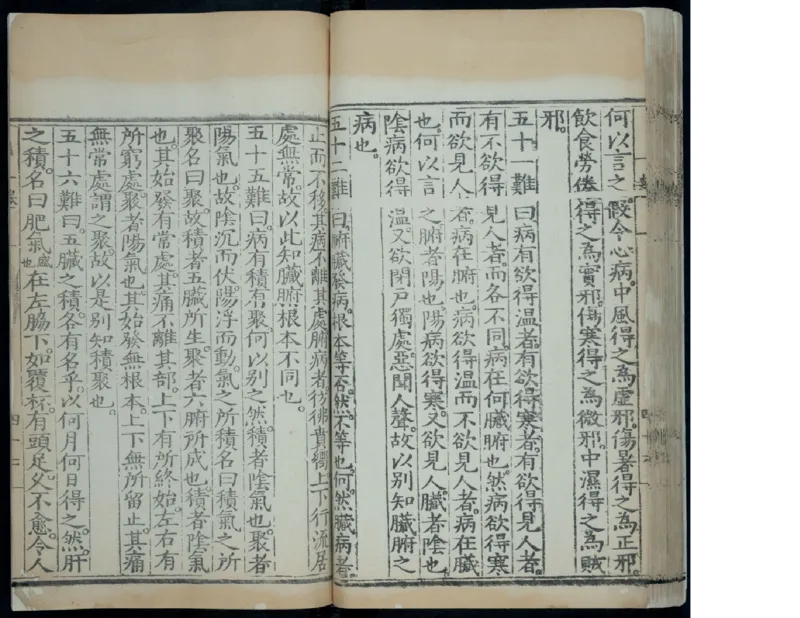 何以言之。假令心病。中風得之為虛邪。傷暑得之為正邪。
飲食勞倦得之為實邪。傷寒得之為微邪。中濕得之為賊
邪。
五十一難曰病有欲得溫者。有欲得寒者。有欲得見人者。
有不欲得見人者。而各不同。病在何臟腑也。然病欲得寒
而欲見人者。病在腑也。病欲得溫而不欲見人者。病在臟
也。何以言之腑者陽也。陽病欲得寒。又欲見人。臟者陰也。
陰病欲得溫。又欲閉戶獨處。惡聞人聲。故以別知臟腑之
病也。
五十二難曰。腑臟發病。根本等否。然。不等也。何。然。臟病者。
止而不移其病不離其處腑病者彷彿賁嚮上下行流居
處無常。故以此知臟腑根本不同也。
五十五難曰。病有積有聚。何以別之。然。積者陰氣也。聚者
陽氣也。故陰沉而伏。陽浮而動。氣之所積名曰積。氣之所
聚名曰聚。故積者五臟所生。聚者六腑所成也。積者陰氣
也。其始發有常處。其痛不離其部。上下有所終始。左右有
所窮處。聚者陽氣也。其始發無根本。上下無所留止。其痛
無常處。謂之聚。故以是別知積聚也。
五十六難曰。五臟之積。各有名乎。以何月何日得之。然。肝
之積。名曰肥氣盛也在左脇下。如覆杯。有頭足。久不愈。令人